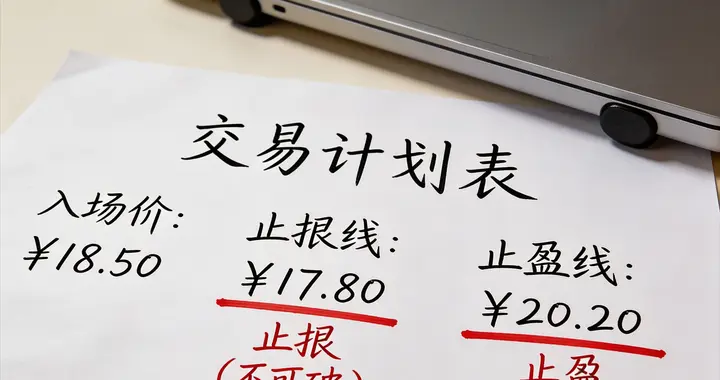 交易计划表
入场价:
¥18.50
止拫线:
¥17.80
止拫
(不可破)
止盈线:
¥20.20
止盈